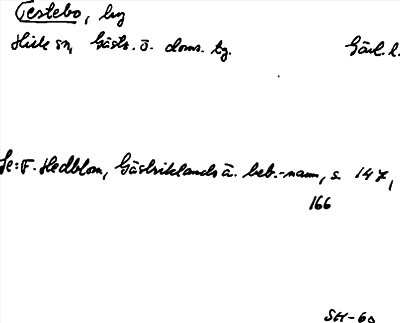 Testebo, by
Hille sn, Gästr. ö. doms. tg. Gävl. l.
Se: F. Hedblom, Gästriklands ä. beb.-namn, s. 147,
166
SH-60